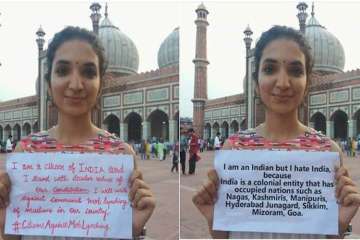 I am a citizen of INDIA and
I stand with secular values of
our Constitution. I will write
against communal mob lynching
of muslims in our country.
#CitizensAgainstMobLynching
I am an Indian but I hate India,
because
India is a colonial entity that has
occupied nations such as
Nagas, Kashmiris, Manipuris,
Hyderabad Junagard, Sikkim,
Mizoram, Goa.